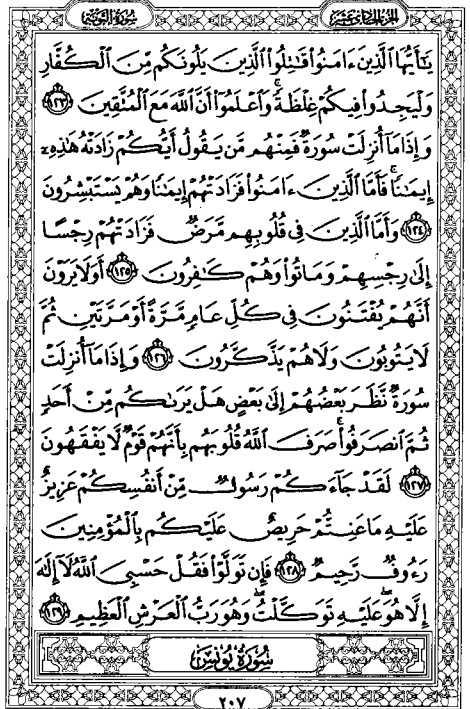 سُورَةُ التَّوْبَةِ
الجزء الحادي عشر
يَـٰٓأَيُّهَا ٱلَّذِينَ ءَامَنُوا۟ قَـٰتِلُوا۟ ٱلَّذِينَ يَلُونَكُم مِّنَ ٱلْكُفَّارِ
وَلْيَجِدُوا۟ فِيكُمْ غِلْظَةً ۚ وَٱعْلَمُوٓا۟ أَنَّ ٱللَّهَ مَعَ ٱلْمُتَّقِينَ ١٢٣
وَإِذَا مَآ أُنزِلَتْ سُورَةٌ فَمِنْهُم مَّن يَقُولُ أَيُّكُمْ زَادَتْهُ هَـٰذِهِۦٓ
إِيمَـٰنًا ۚ فَأَمَّا ٱلَّذِينَ ءَامَنُوا۟ فَزَادَتْهُمْ إِيمَـٰنًا وَهُمْ يَسْتَبْشِرُونَ
١٢٤ وَأَمَّا ٱلَّذِينَ فِى قُلُوبِهِم مَّرَضٌ فَزَادَتْهُمْ رِجْسًا
إِلَىٰ رِجْسِهِمْ وَمَاتُوا۟ وَهُمْ كَـٰفِرُونَ ١٢٥ أَوَلَا يَرَوْنَ
أَنَّهُمْ يُفْتَنُونَ فِى كُلِّ عَامٍ مَّرَّةً أَوْ مَرَّتَيْنِ ثُمَّ
لَا يَتُوبُونَ وَلَا هُمْ يَذَّكَّرُونَ ١٢٦ وَإِذَا مَآ أُنزِلَتْ
سُورَةٌ نَّظَرَ بَعْضُهُمْ إِلَىٰ بَعْضٍ هَلْ يَرَىٰكُم مِّنْ أَحَدٍ
ثُمَّ ٱنصَرَفُوا۟ ۚ صَرَفَ ٱللَّهُ قُلُوبَهُم بِأَنَّهُمْ قَوْمٌ لَّا يَفْقَهُونَ
١٢٧ لَقَدْ جَآءَكُمْ رَسُولٌ مِّنْ أَنفُسِكُمْ عَزِيزٌ
عَلَيْهِ مَا عَنِتُّمْ حَرِيصٌ عَلَيْكُم بِٱلْمُؤْمِنِينَ
رَءُوفٌ رَّحِيمٌ ١٢٨ فَإِن تَوَلَّوْا۟ فَقُلْ حَسْبِىَ ٱللَّهُ لَآ إِلَـٰهَ
إِلَّا هُوَ ۖ عَلَيْهِ تَوَكَّلْتُ ۖ وَهُوَ رَبُّ ٱلْعَرْشِ ٱلْعَظِيمِ ١٢٩
سُورَةُ يُونُسَ
٢٠٧